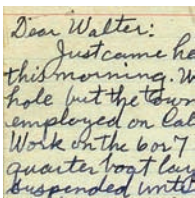 Dear Walter:
Just came he
this morning. W
hole but the town
employed on Cal
Work on the 6 or 7
quarter boat lay
suspended until